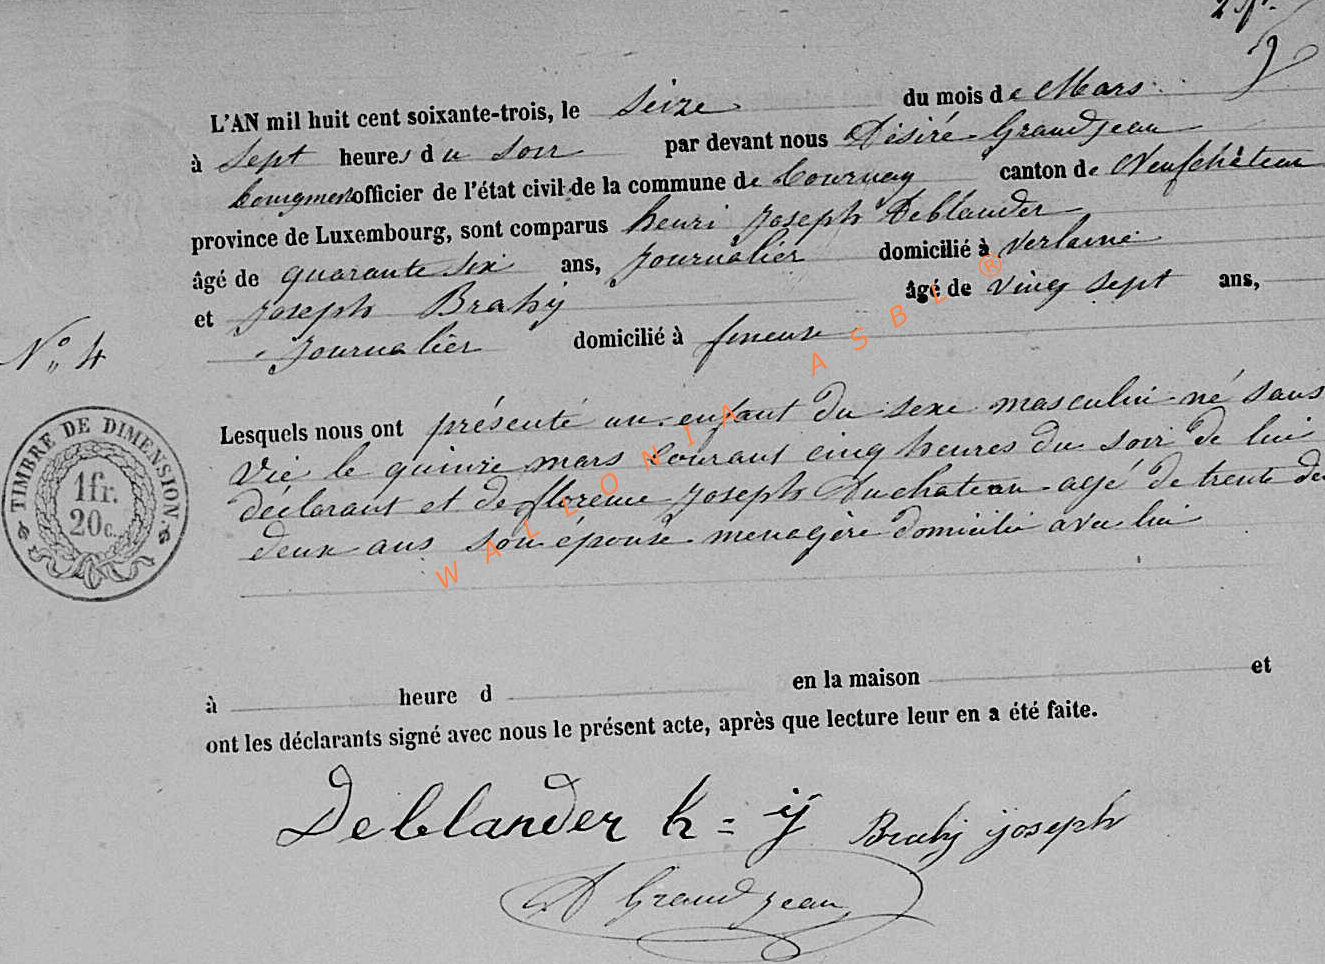 L'AN mil huit cent soixante-trois, le Seize du mois de Mars
à Sept heures du Soir par devant nous Désiré Grandjean
bourgmestre officier de l'état civil de la commune de Tournay canton de Neufchâteau
province de Luxembourg, sont comparus henri joseph Deblander
âgé de quarante six ans, journalier domicilié à Verlaine
et joseph Brahy âgé de Vingt sept ans,
Journalier domicilié à
N° 4
TIMBRE DE DIMENSION.
1fr.
20c.
Lesquels nous ont présenté un enfant du sexe masculin né sans
vie le quinze mars courant cinq heures du soir de lui
déclarant et de florence joseph Duchateau agé de trente
deux ans son épouse menagère domicilié avec lui
à heure d en la maison et
ont les déclarants signé avec nous le présent acte, après que lecture leur en a été faite.
Deblander h = ÿ Brahÿ joseph
D Grandjean
WALLONIA ASBL ®